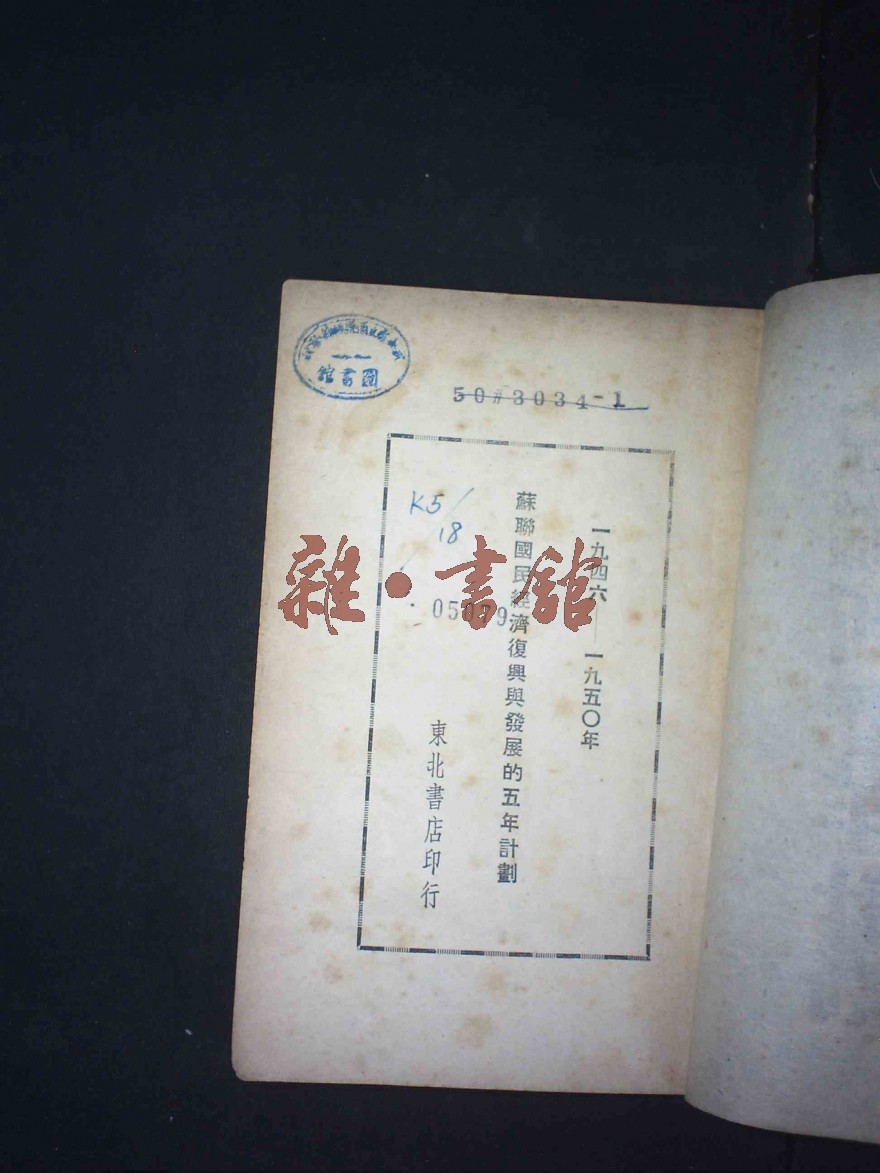 圖書館
50#3034-1
K5/
18
一九四六——一九五〇年
蘇聯國民經濟復興與發展的五年計劃
東北書店印行
雜·書館